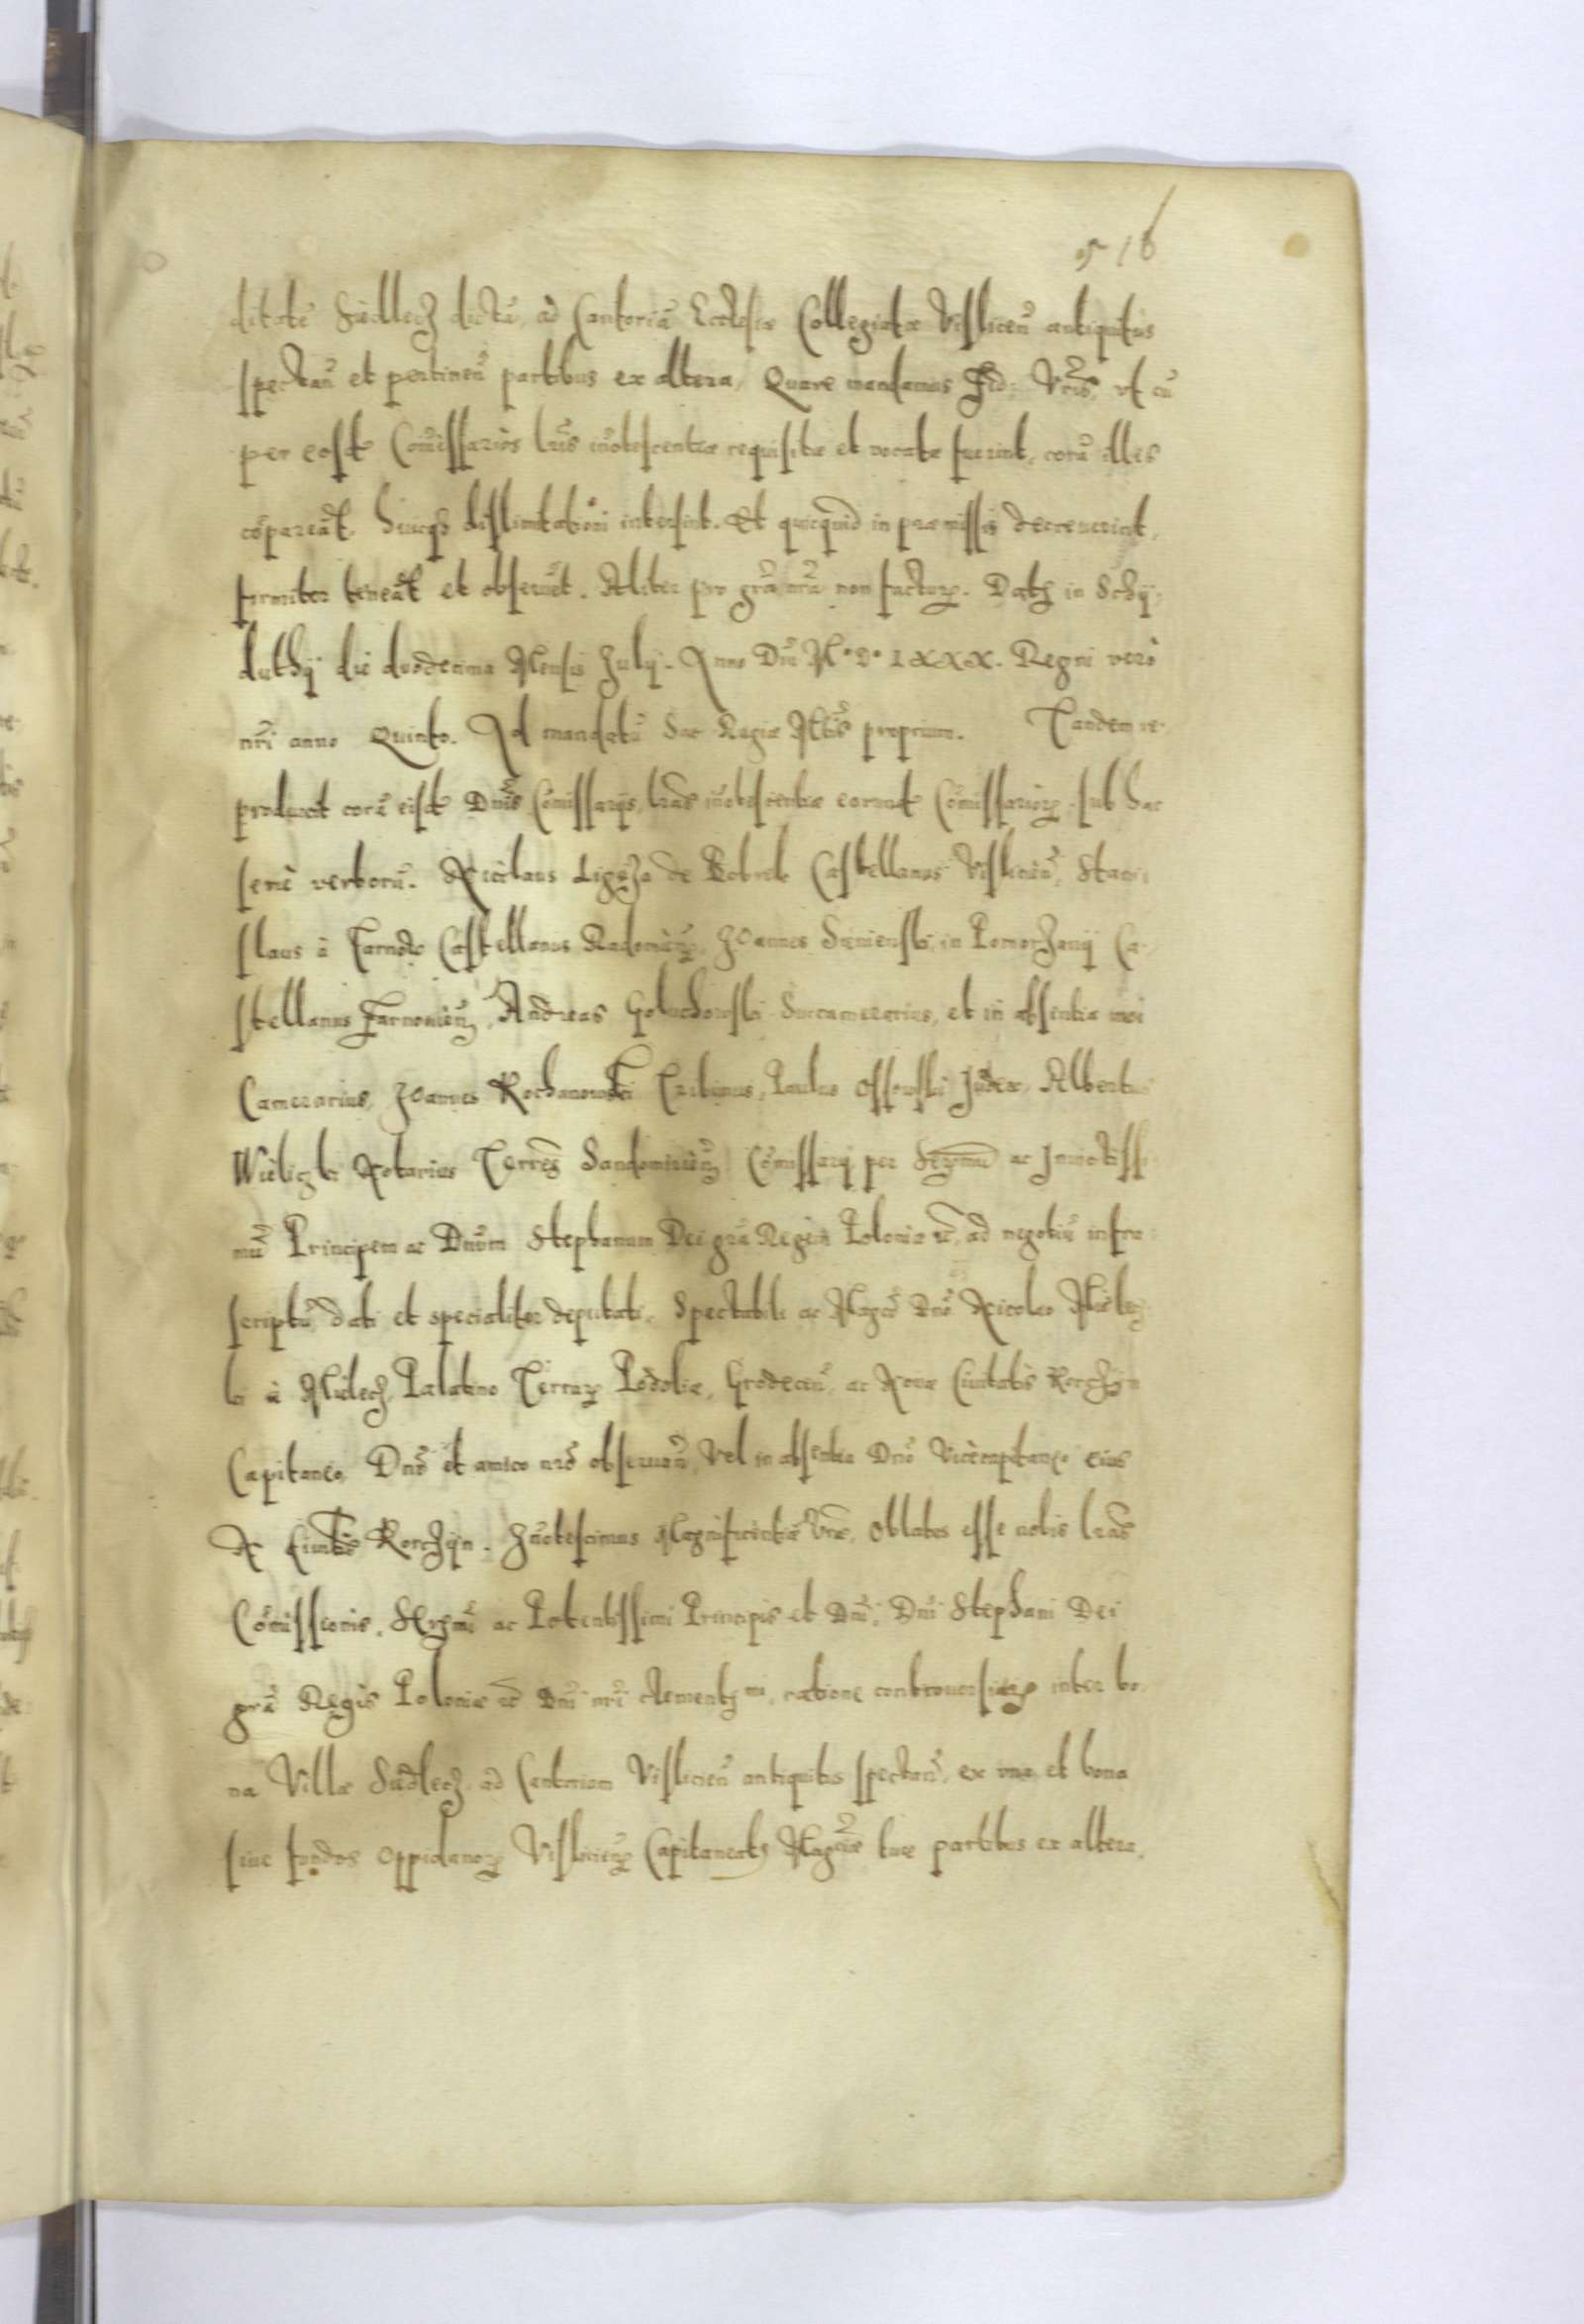 516
ditatē Siedlecz dictā, ad Cantoriā Ecclesiæ Collegiatæ Vislicen̄ antiquitus
spectan̄ et pertinen̄ partibus ex altera, Quare mandamus Fid: Vr̄is, vt cū
per eosdē Com̄issarios lr̄is in̄otescentiæ requisitæ et vocatæ fuerint, corā illis
cōpareāt, huicq3 dislimitationi intersint. Et quicquid in præmissis decreverint,
firmiter teneāt et obseruēt. Aliter pro gr̄a nr̄a non factur̄. Dat3 in
die duodecima Mensis Julij. Anno Dn̄i M° D° LXXX. Regni verò
nr̄i anno Quinto. Ad mandatū Sac Regiæ Mtīs proprium. Tandem re-
produxit corā eisdē Dn̄is Cōmissarijs, lr̄as in̄otescentiæ eorundē Cōmissarior̄, sub hac
serie verborū. Nicolaus Ligęza de Bobrek Castellanus Vislicien̄, Stani-
slaus à Tarnow Castellanus Radomien̄, Joannes Sienienski in Pomorzanij Ca-
stellanus Żarnowien̄, Andreas Goluchowski Succamerarius, et in absentia mei
Camerarius, Joannes Kochanowski Tribunus, Paulus Ossowski Judex, Albertus
Wielicz Notarius Terrēs Sandomirien̄ Cōmissarij per Ser̄mū ac Invictissi-
mū Principem ac Dn̄um Stephanum Dei gr̄a Regem Poloniæ ec, ad negotiū infra-
scriptū dati et specialiter deputati, Spectabili ac Mag̃co Dn̄o Nicolao Mielec-
ki à Mielecz, Palatino Terrar̄ Podoliæ, Grodecen̄, ac Nouæ Ciuitatis Korczyn
Capitaneo, Dn̄o et amico nr̄o obseruan̄, Vel in absentia Dn̄o Vicecapitaneo eius
N Ciuitatis Korczyn. In̄otescimus Magnificentiæ Vr̄æ, Oblatas esse nobis lr̄as
Cōmissionis, Ser̄mi ac Potentissimi Principis et Dn̄i, Dn̄i Stephani Dei
gr̄a Regis Poloniæ ec Dn̄i nr̄i clementis mi, ratione controuersiar̄ inter bo-
na Villæ Siedlecz ad Cantoriam Vislicien̄ antiquitus spectan̄, ex vna et bona
siue fundos oppidanor̄ Vislicien̄ Capitaneat9 Mag̃ciæ tuæ partibus ex altera,